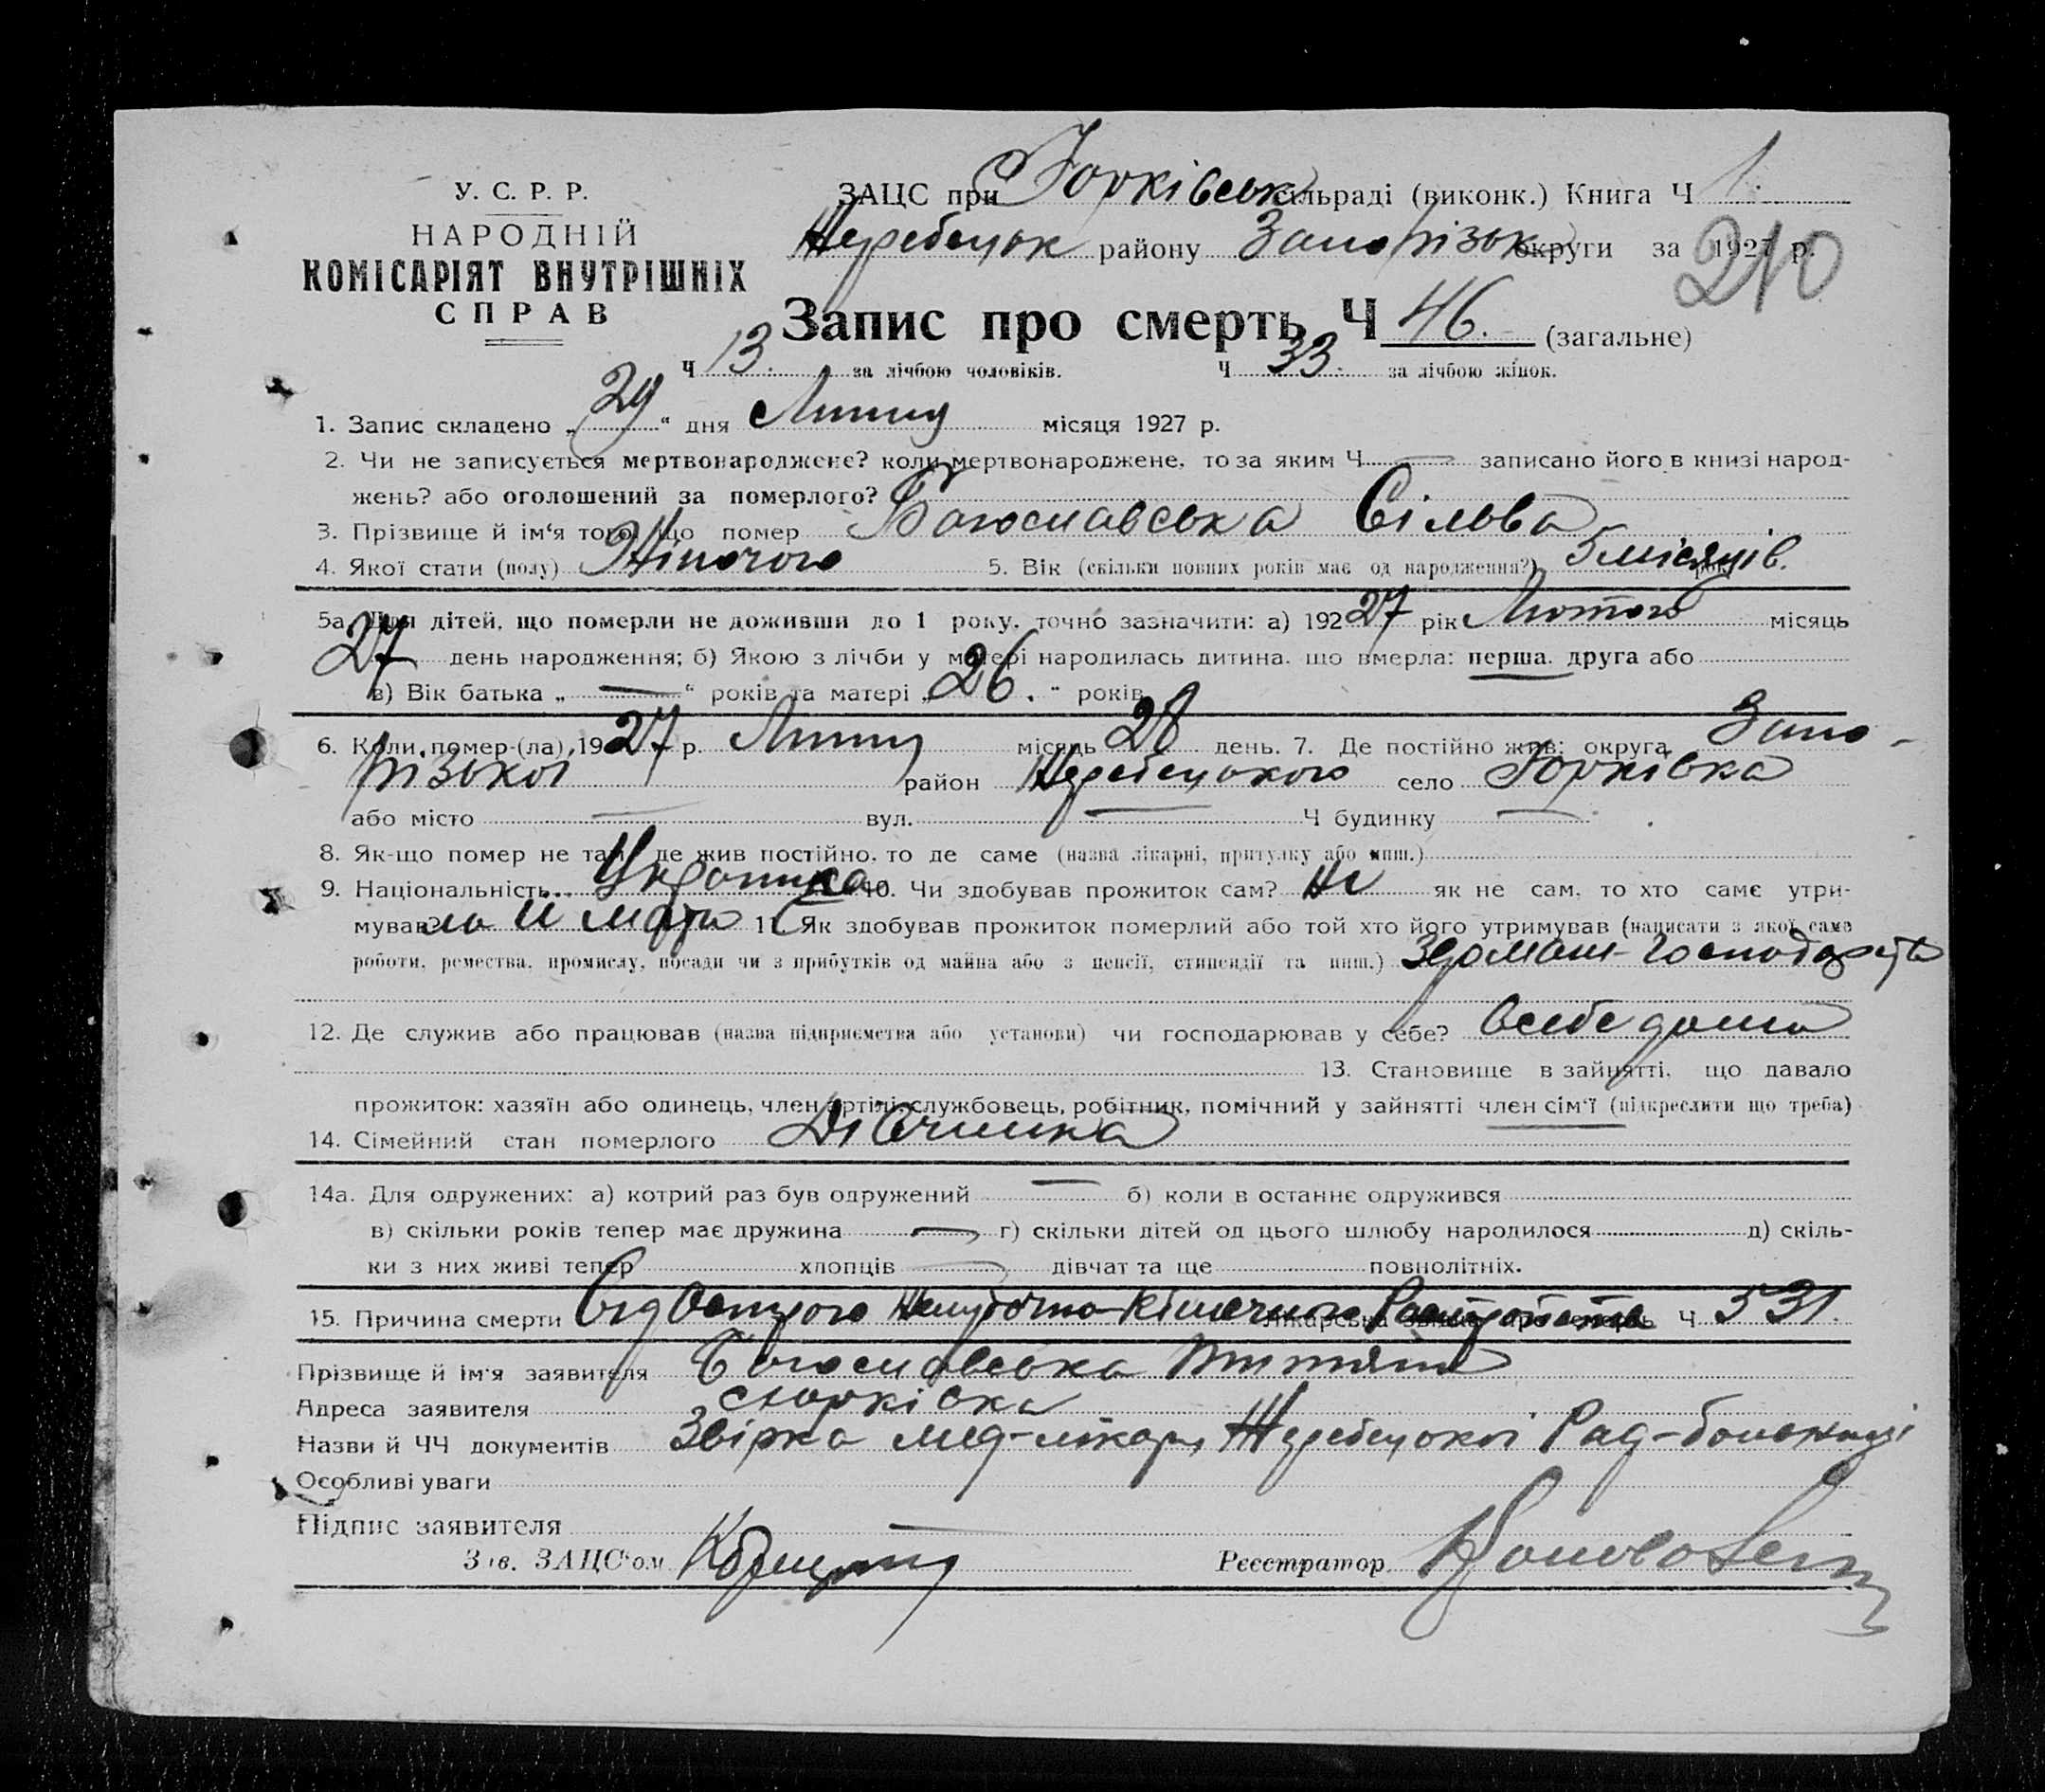 У. С. Р. Р.
НАРОДНІЙ
КОМІСАРІЯТ ВНУТРІШНІХ
СПРАВ
ЗАЦС при Юрківськ сільраді (виконк.) Книга Ч 1.
Жеребецьк району Запорізьк округи за 1927 р.
210
Запис про смерть Ч 46. (загальне)
Ч 13. за лічбою чоловіків. Ч 33. за лічбою жінок.
1. Запис складено „ 29 “ дня Липня місяця 1927 р.
2. Чи не записується мертвонароджене? коли мертвонароджене, то за яким Ч — записано його в книзі народ-
жень? або оголошений за померлого?
3. Прізвище й ім‘я того, що помер Богославська Сільва
4. Якої стати (полу) Жіночого 5. Вік (скільки повних років має од народження?) 5 місяців.
5а. Для дітей, що померли не доживши до 1 року, точно зазначити: а) 192 27 рік Лютого місяць
27 день народження; б) Якою з лічби у матері народилась дитина, що вмерла: перша, друга або
в) Вік батька „ — “ років та матері „ 26. “ років
6. Коли помер-(ла) 19 27 р. Липня місяць 28 день. 7. Де постійно жив: округа Запо-
різької район Жеребецького село Юрківка
або місто — вул. — Ч будинку —
8. Як-що помер не там, де жив постійно, то де саме (назва лікарні, притулку або инш.)
9. Національність Українка 10. Чи здобував прожиток сам? Ні як не сам, то хто саме утри-
мував? ла її мати 11. Як здобував прожиток померлий або той хто його утримував (написати з якої само
роботи, ремества, промислу, посади чи з прибутків од майна або з пенсії, стипендії та инш.) господарства
12. Де служив або працював (назва підприємства або установи) чи господарював у себе? Всебе дома
13. Становище в зайнятті, що давало
прожиток: хазяїн або одинець, член артілі, службовець, робітник, помічний у зайнятті член сім‘ї (підкреслити що треба)
14. Сімейний стан померлого Дівчинка
14а. Для одружених: а) котрий раз був одружений — б) коли в останнє одружився
в) скільки років тепер має дружина — г) скільки дітей од цього шлюбу народилося д) скіль-
ки з них живі тепер хлопців — дівчат та ще повнолітніх.
15. Причина смерти Від Острого Желудочно-Кішечного Ч 531.
Прізвище й ім‘я заявителя Богославська
Адреса заявителя с Юрківка
Назви й ЧЧ документів Звірка мед-лікаря Жеребецької Рад-больниці
Особливі уваги
Підпис заявителя —
Зав. ЗАЦС‘ом
Реєстратор